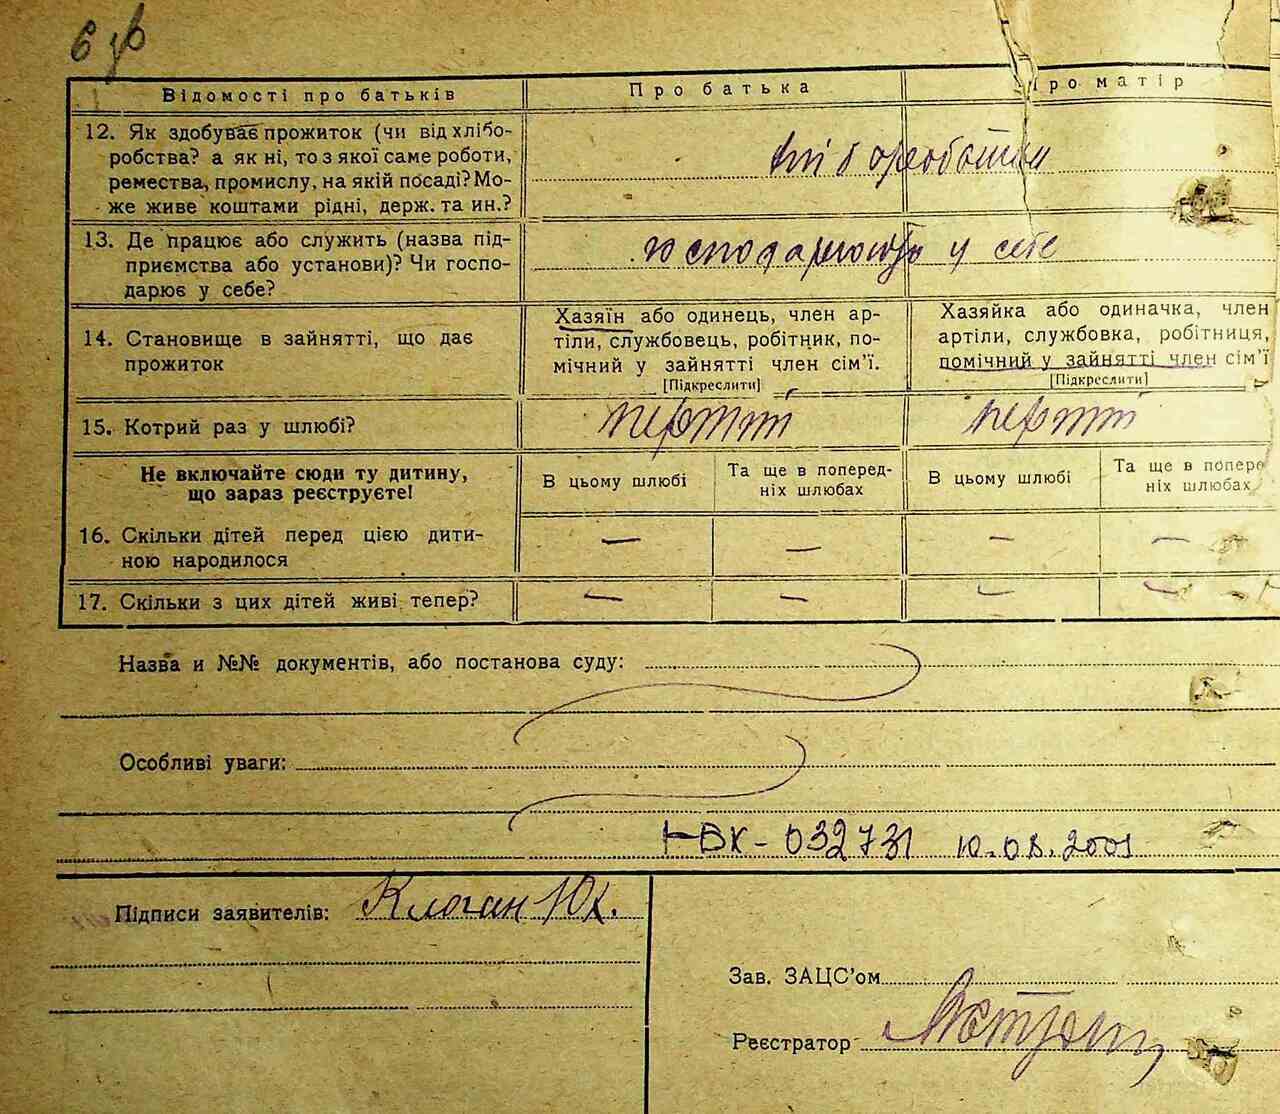 6 зв
Відомості про батьків
Про батька
Про матір
12. Як здобуває прожиток (чи від хлібо-
робства? а як ні, то з якої саме роботи,
ремества, промислу, на якій посаді? Мо-
же живе коштами рідні, держ. та ин.?
13. Де працює або служить (назва під-
приємства або установи)? Чи госпо-
дарює у себе?
господарюють у себе
14. Становище в зайнятті, що дає
прожиток
Хазяїн або одинець, член ар-
тіли, службовець, робітник, по-
мічний у зайнятті член сім'ї.
[Підкреслити]
Хазяйка або одиначка, член
артіли, службовка, робітниця,
помічний у зайнятті член сім'ї
[Підкреслити]
15. Котрий раз у шлюбі?
перший
перший
Не включайте сюди ту дитину,
що зараз реєструєте!
В цьому шлюбі
Та ще в поперед-
ніх шлюбах
В цьому шлюбі
Та ще в попере
ніх шлюбах
16. Скільки дітей перед цією дити-
ною народилося
— — — —
17. Скільки з цих дітей живі тепер?
— — — —
Назва и №№ документів, або постанова суду:
Особливі уваги:
І-ВК - 032731 10.08.2001
Підписи заявителів: Клоган Ю.
Зав. ЗАЦС'ом
Реєстратор